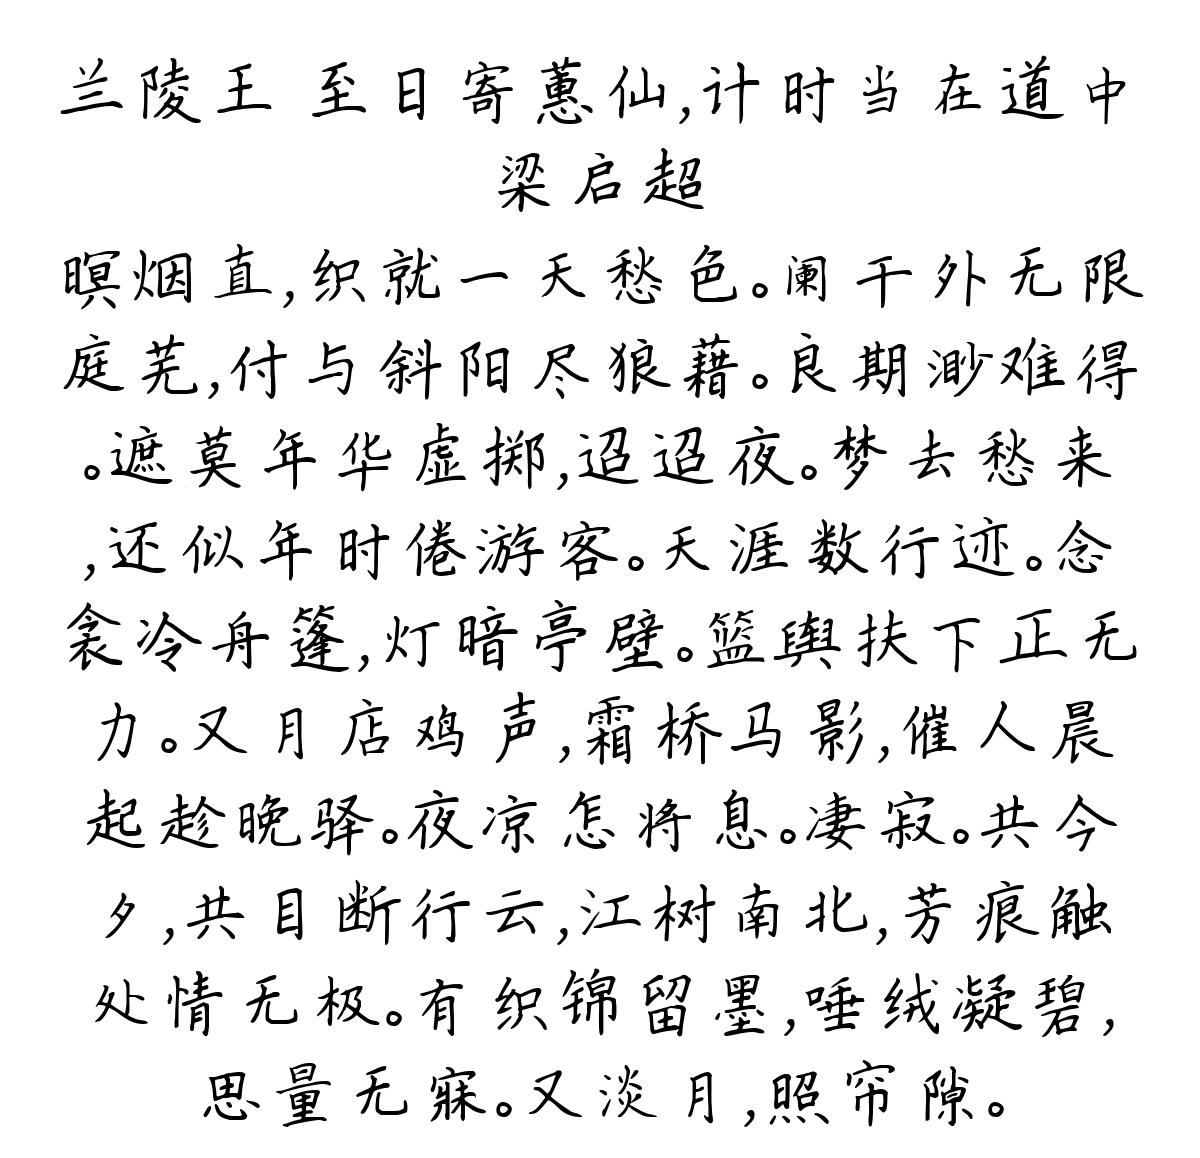 兰陵王 至日寄蕙仙,计时当在道中
梁启超
暝烟直,织就一天愁色。阑干外无限
庭芜,付与斜阳尽狼藉。良期渺难得
。遮莫年华虚掷,迢迢夜。梦去愁来
,还似年时倦游客。天涯数行迹。念
衾冷舟篷,灯暗亭壁。篮舆扶下正无
力。又月店鸡声,霜桥马影,催人晨
起趁晚驿。夜凉怎将息。凄寂。共今
夕,共目断行云,江树南北,芳痕触
处情无极。有织锦留墨,唾绒凝碧,
思量无寐。又淡月,照帘隙。